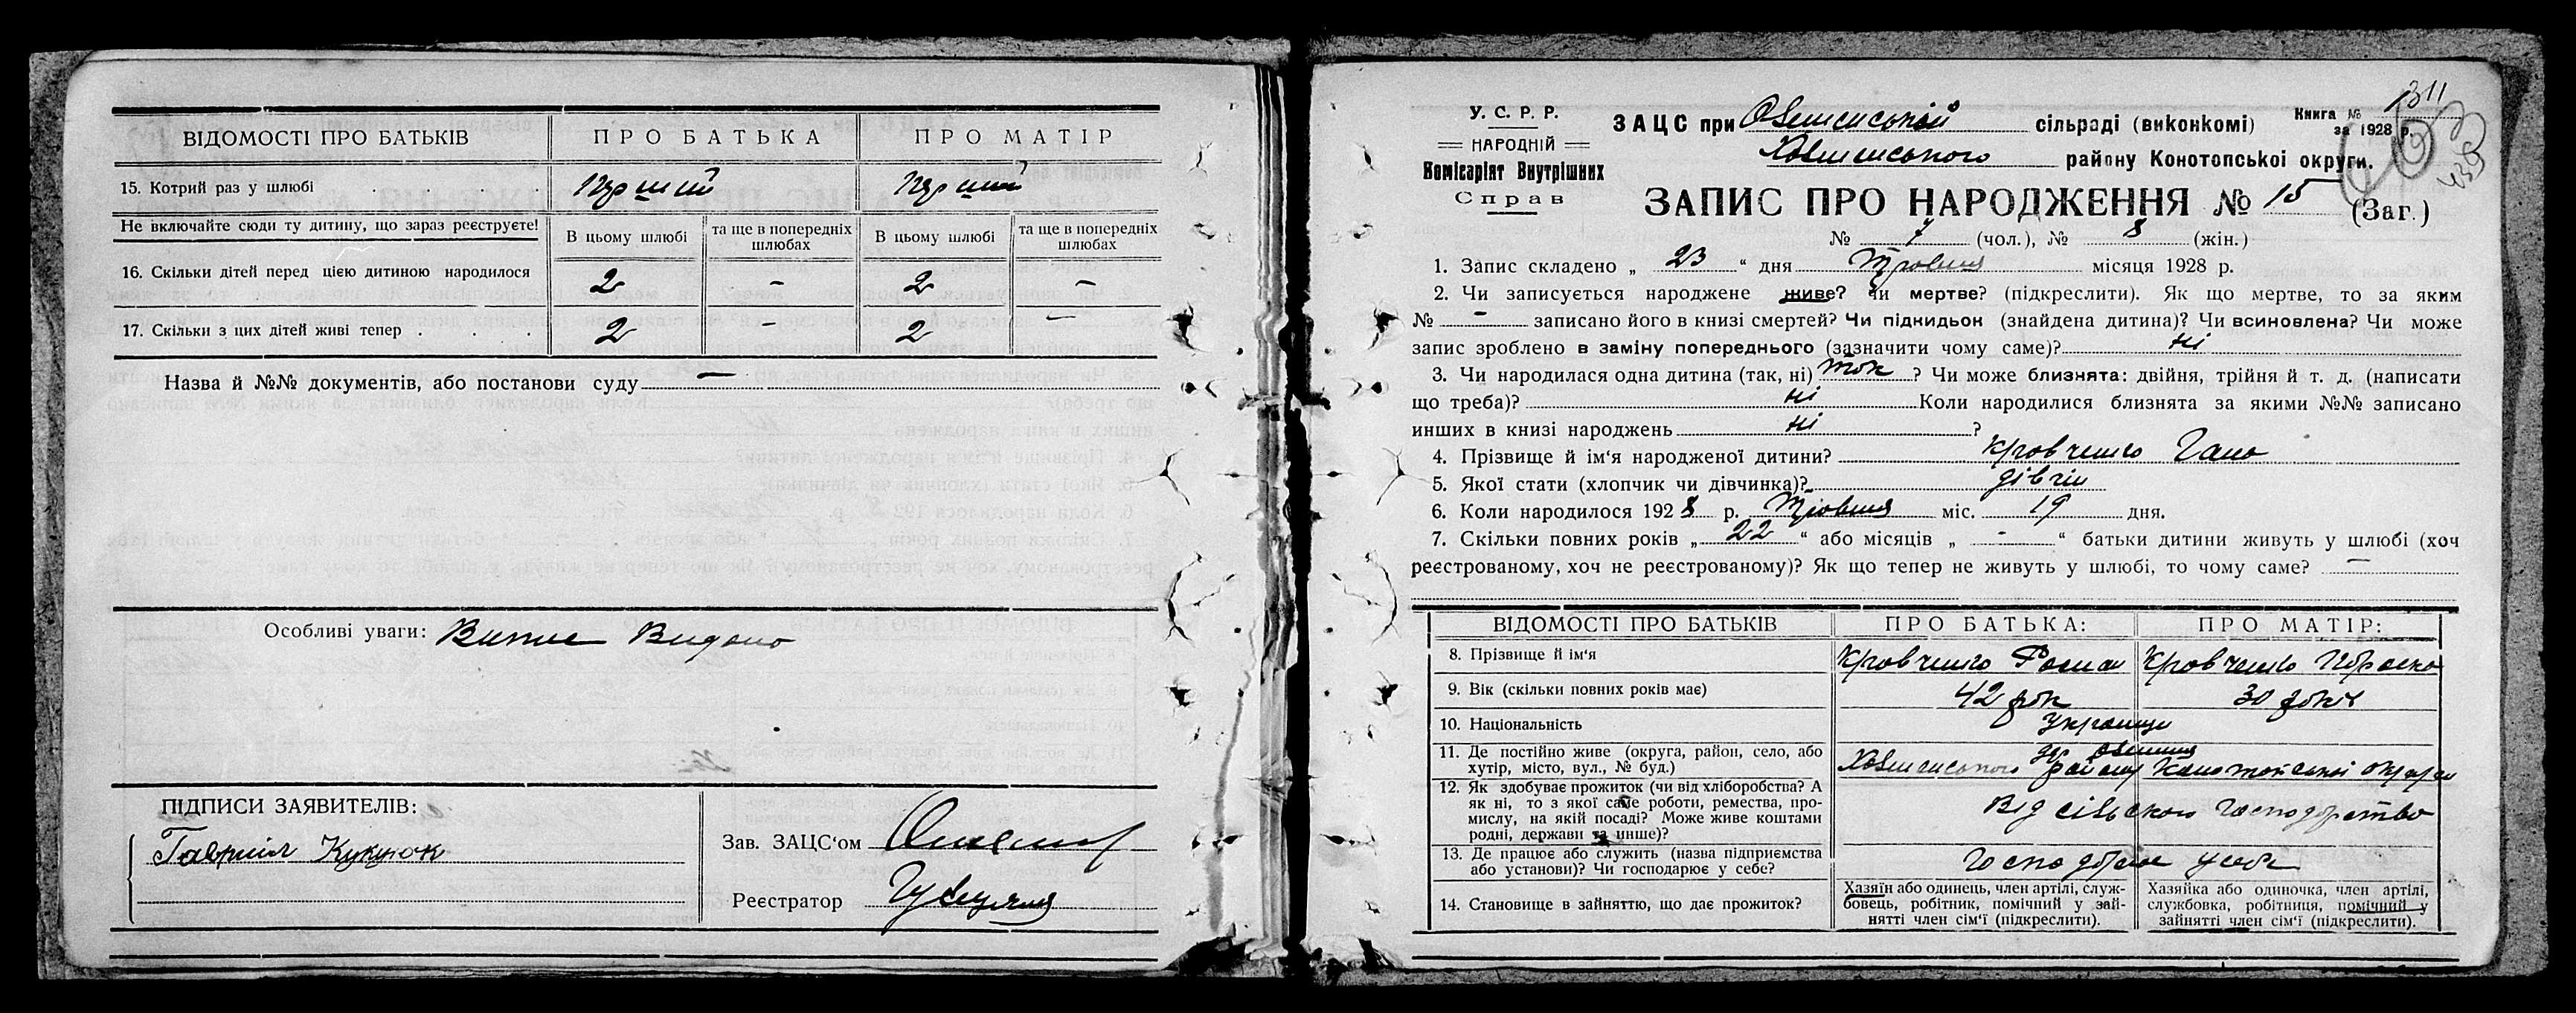 ВІДОМОСТІ ПРО БАТЬКІВ ПРО БАТЬКА ПРО МАТІР
15. Котрий раз у шлюбі . . . . перший перший
Не включайте сюди ту дитину, що зараз реєструєте! В цьому шлюбі та ще в попередніх шлюбах В цьому шлюбі та ще в попередніх шлюбах
16. Скільки дітей перед цією дитиною народилося 2 - 2 -
17. Скільки з цих дітей живі тепер . . . 2 - 2 -
Назва й №№ документів, або постанови суду —
Особливі уваги: Випис Видано
ПІДПИСИ ЗАЯВИТЕЛІВ:
Гавриіл
Зав. ЗАЦС‘ом
Реєстратор
У. С. Р. Р.
НАРОДНІЙ
Комісаріят Внутрішних
Справ
ЗАЦС при сільраді (виконкомі)
району Конотопської округи.
Книга № 1311
за 1928 р.
ЗАПИС ПРО НАРОДЖЕННЯ № 15 (Заг.)
№ 7 (чол.), № 8 (жін.)
1. Запис складено „ 23 “ дня Травня місяця 1928 р.
2. Чи записується народжене живе? чи мертве? (підкреслити). Як що мертве, то за яким
№ - записано його в книзі смертей? Чи піднидьок (знайдена дитина)? Чи всиновлена? Чи може
запис зроблено в заміну попереднього (зазначити чому саме)? ні
3. Чи народилася одна дитина (так, ні) так ? Чи може близнята: двійня, трійня й т. д. (написати
що треба)? ні Коли народилися близнята за якими №№ записано
инших в книзі народжень ні ?
4. Прізвище й ім‘я народженої дитини? Кравченко Гана
5. Якої стати (хлопчик чи дівчинка)? дівчин
6. Коли народилося 1928 р. Травня міс. 19 дня.
7. Скільки повних років „ 22 “ або місяців „ - “ батьки дитини живуть у шлюбі (хоч
реєстрованому, хоч не реєстрованому)? Як що тепер не живуть у шлюбі, то чому саме? —
ВІДОМОСТІ ПРО БАТЬКІВ ПРО БАТЬКА: ПРО МАТІР:
8. Прізвище й ім‘я Кравченко Роман Кравченко Параска
9. Вік (скільки повних років має) 42 рок 30 років
10. Національність Українци
11. Де постійно живе (округа, район, село, або
хутір, місто, вул., № буд.) району Конотопської округи
12. Як здобуває прожиток (чи від хліборобства? А
як ні, то з якої саме роботи, ремества, про-
мислу, на якій посаді? Може живе коштами
родні, держави та инше)? Від сільского господарства
13. Де працює або служить (назва підприємства
або установи)? Чи господарює у себе? Господарює у себе
14. Становище в зайняттю, що дає прожиток?
Хазяїн або одинець, член артілі, служ-
бовець, робітник, помічний у зай-
нятті член сім‘ї (підкреслити).
Хазяйка або одиночка, член артілі,
службовка, робітниця, помічний у
зайнятті член сім‘ї (підкреслити).